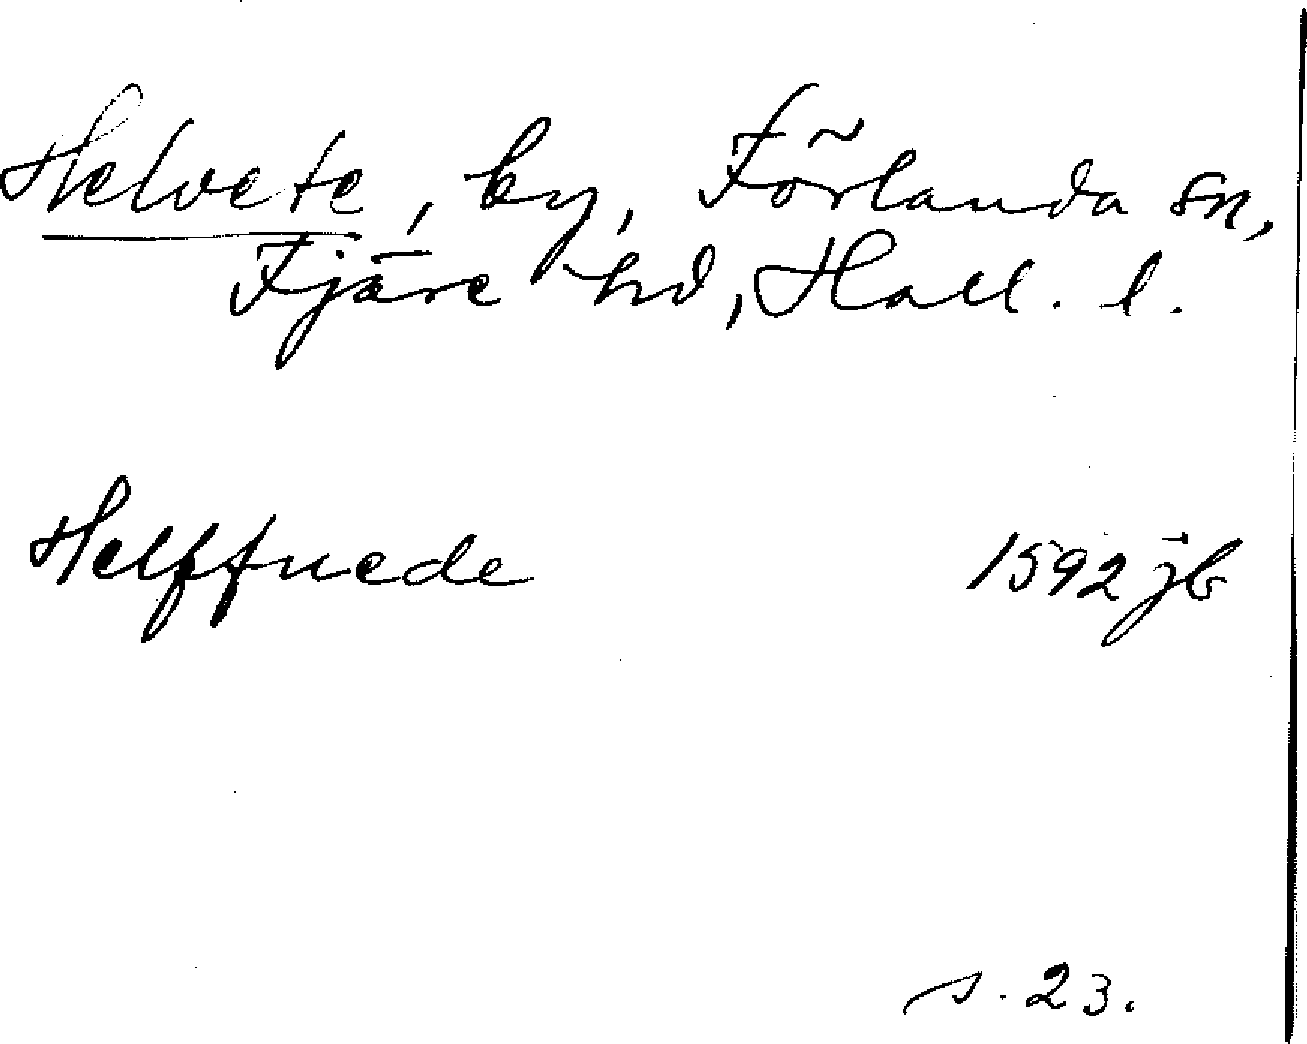 Helvete, by, Förlanda sn,
Fjäre hd, Hall. l.
Helffuede 1592 jb
s. 23.